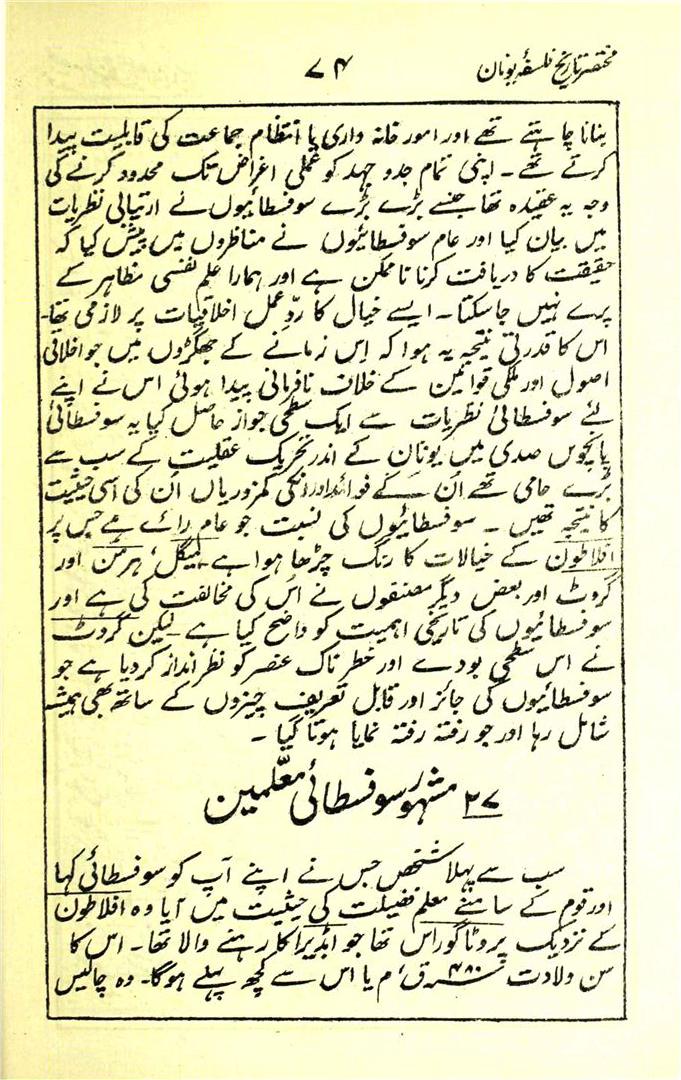 مختصر تاریخ فلسفۂ یونان
۷۴
بنانا چاہتے تھے اور امور خانہ داری یا انتظام جماعت کی قابلیت پیدا
کرتے تھے۔ اپنی تمام جدو جہد کو عملی اغراض تک محدود کرنے کی
وجہ یہ عقیدہ تھا جسے بڑے بڑے سوفسطائیوں نے ارتیابی نظریات
میں بیان کیا اور عام سوفسطائیوں نے مناظروں میں پیش کیا کہ
حقیقت کا دریافت کرنا ناممکن ہے اور ہمارا علم نفسی مظاہر کے
پرے نہیں جاسکتا۔ ایسے خیال کا ردِّ عمل اخلاقیات پر لازمی تھا۔
اس کا قدرتی نتیجہ یہ ہوا کہ اِس زمانے کے جھگڑوں میں جو اخلاقی
اصول اور ملکی قوانین کے خلاف نافرمانی پیدا ہوئی اس نے اپنے
لئے سوفسطائی نظریات سے ایک سطحی جواز حاصل کیا یہ سوفسطائی
پانچویں صدی میں یونان کے اندر تحریک عقلیت کے سب سے
بڑے حامی تھے اُن کے فوائد اور انکی کمزوریاں اُن کی اسی حیثیت
کا نتیجہ تھیں۔ سوفسطائیوں کی نسبت جو عام رائے ہے جس پر
افلاطون کے خیالات کا رنگ چڑھا ہوا ہے ہیگل، ہرمن اور
گروٹ اور بعض دیگر مصنفوں نے اُس کی مخالفت کی ہے اور
سوفسطائیوں کی تاریخی اہمیت کو واضح کیا ہے لیکن گروٹ
نے اس سطحی بودے اور خطرناک عنصر کو نظر انداز کر دیا ہے جو
سوفسطائیوں کی جائز اور قابل تعریف چیزوں کے ساتھ بھی ہمیشہ
شامل رہا اور جو رفتہ رفتہ نمایا ہوتا گیا۔
۲۷ مشہور سوفسطائی معلّمین
سب سے پہلا شخص جس نے اپنے آپ کو سوفسطائی کہا
اور قوم کے سامنے معلم فضیلت کی حیثیت میں آیا وہ افلاطون
کے نزدیک پروٹاگوراس تھا جو ابڈیرا کا رہنے والا تھا۔ اس کا
سن ولادت ۴۸۰ ق، م یا اس سے کچھ پہلے ہوگا۔ وہ چالیس